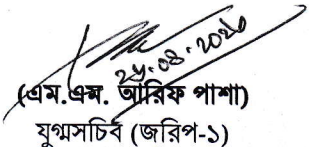 ২৫.০৪.২০২৬
(এম.এম. আরিফ পাশা)
যুগ্মসচিব (জরিপ-১)